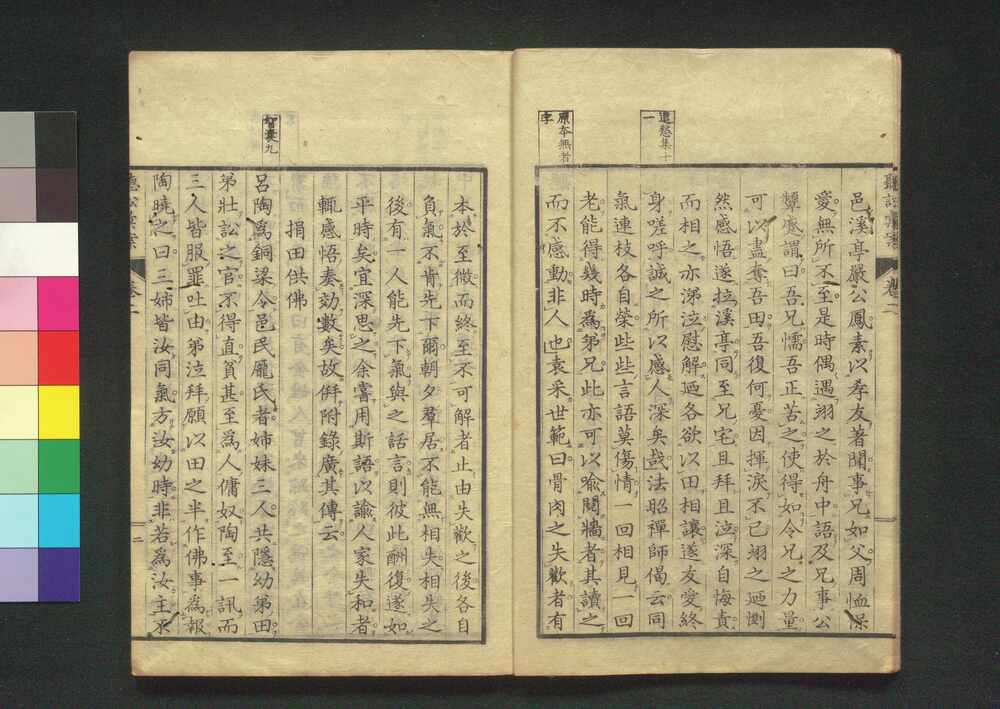 聽訟彙案 卷二
遣愁集十一
邑溪亭嚴公鳳素以孝友著聞事兄如父周恤保
愛無所不至是時偶遇翊之於舟中語及兄事公
顰蹙謂曰吾兄懦吾正苦之使得如令兄之力量
可以盡奪吾田吾復何憂因揮涙不已翊之廼惻
然感悟遂拉溪亭同至兄宅且拜且泣深自悔責
而相之亦涕泣慰解廼各欲以田相讓遂友愛終
身嗟呼誠之所以感人深矣哉法昭禪師偈云同
氣連枝各自榮些些言語莫傷情一回相見一回
原本無者字
老能得幾時爲弟兄此亦可以喩鬩牆者其讀之
而不感動非人也袁采世範曰骨肉之失歡者有
本於至微而終至不可解者止由失歡之後各自
負氣不肯先下爾朝夕羣居不能無相失相失之
後有一人能先下氣與之話言則彼此酬復遂如
平時矣宜深思之余嘗用斯語以諭人家失和者
輒感悟奏効數矣故倂附錄廣其傳云
捐田供佛
智囊九
呂陶爲銅梁令邑民龐氏者姉妹三人共隱幼弟田
弟壯訟之官不得直貧甚至爲人傭奴陶至一訊而
三人皆服罪吐由弟泣拜願以田之半作佛事爲報
陶曉之曰三姉皆汝同氣方汝幼時非若爲汝主不
聽訟彙案 卷二 二